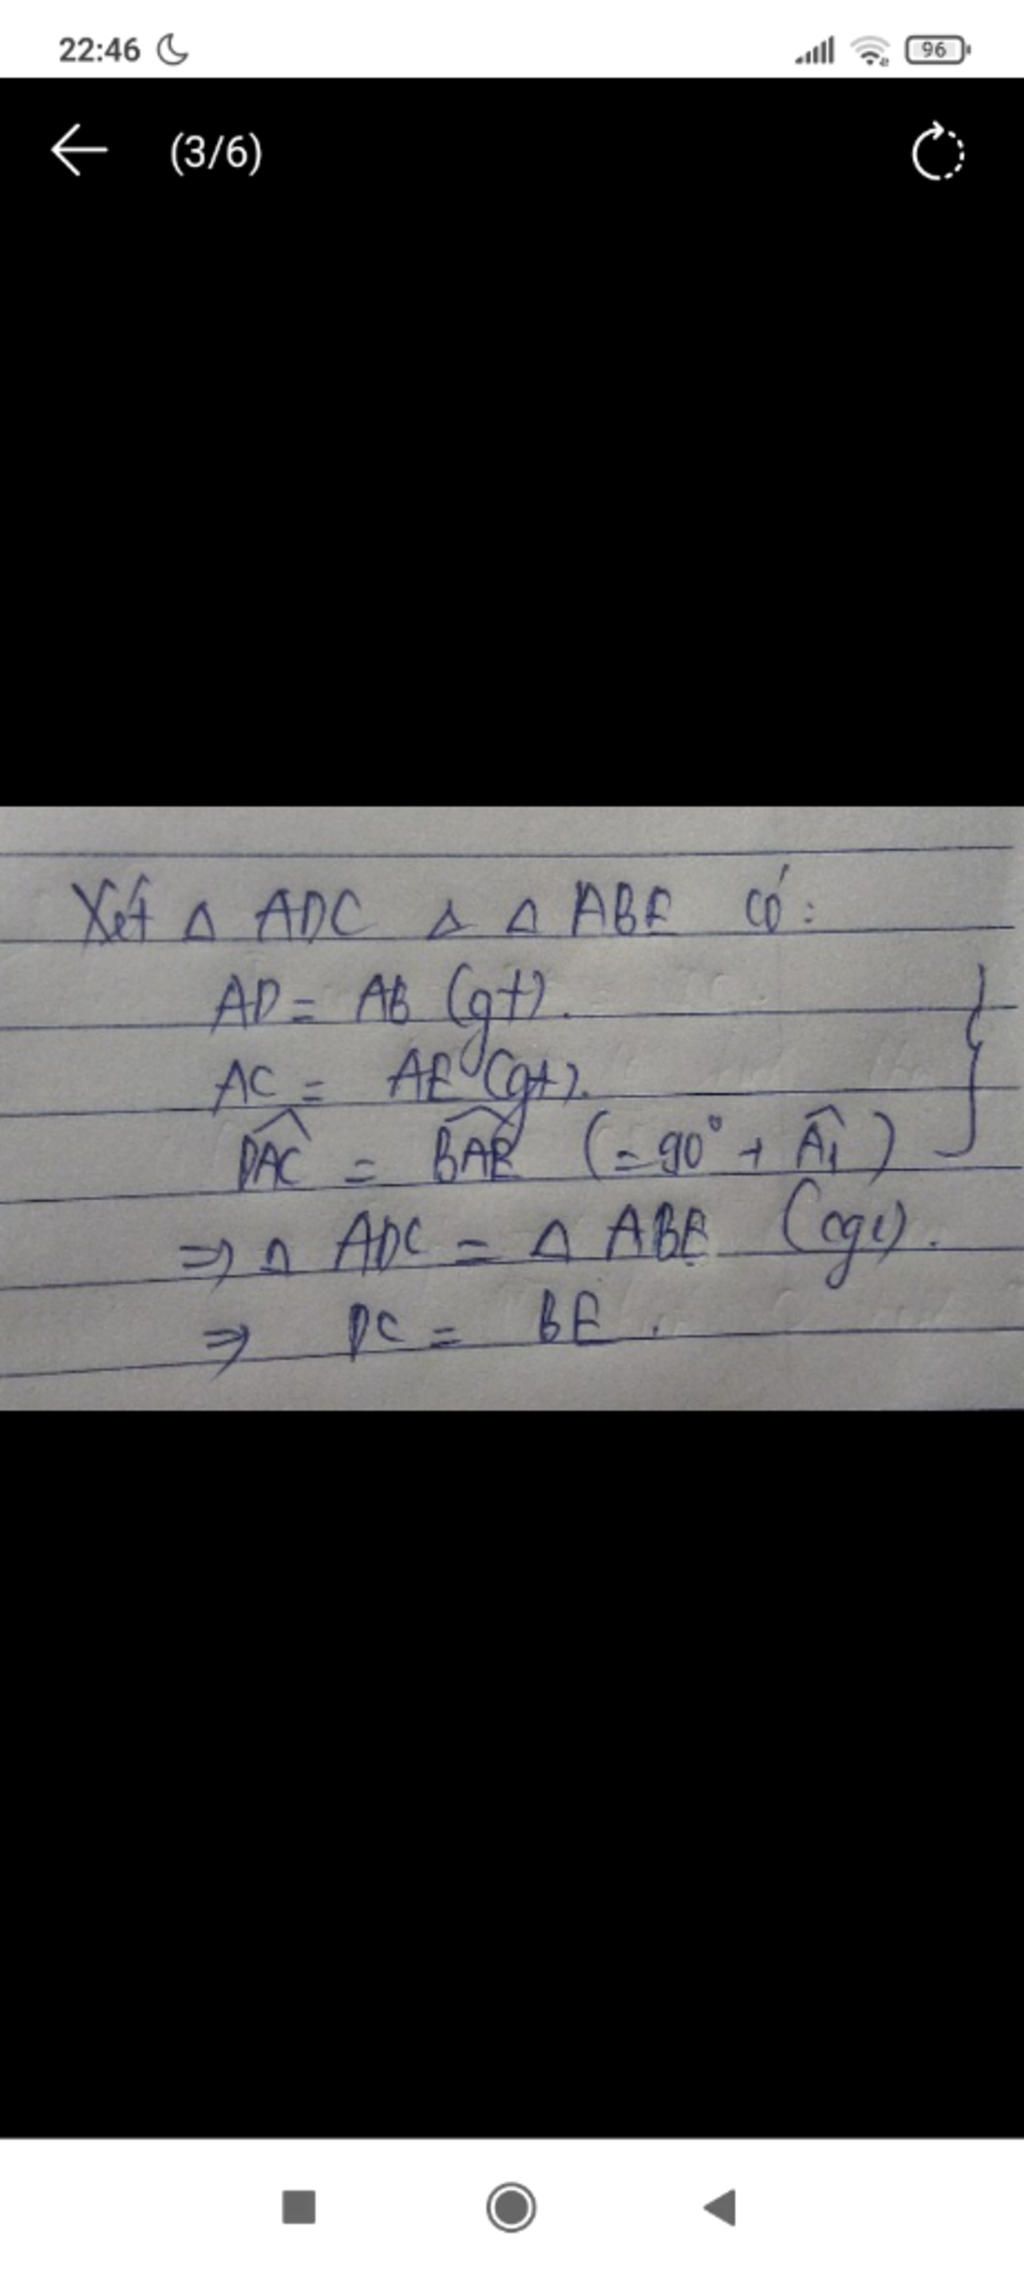 22:46
96
(3/6)
Xét Δ ADC & Δ ABE có:
AD = AB (gt).
AC = AE (gt).
\widehat{DAC} = \widehat{BAE} (= 90° + \widehat{A_1})
=> Δ ADC = Δ ABE (cgc).
=> DC = BE.